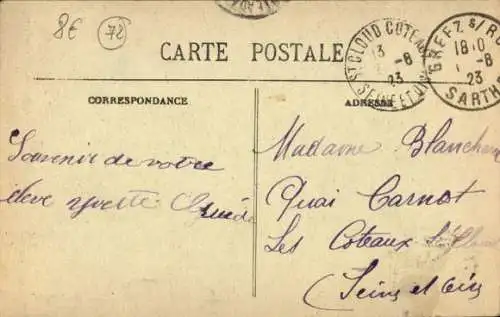 8€ 72
CARTE POSTALE
ST CLOUD COTEAUX
3 -8
23
SEINE ET OISE
GREEZ S/RO
18 10
-8
23
SARTHE
CORRESPONDANCE
ADRESSE
Souvenir de votre
eleve Yvette
Madame Blanchard
Quai Carnot
Les Coteaux St Cloud
Seine et Oise